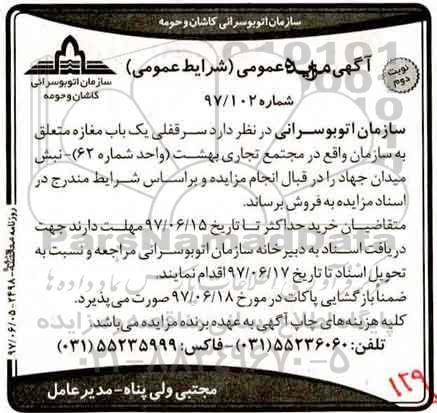 سازمان اتوبوسرانی کاشان و حومه
آگهی مزایده عمومی (شرایط عمومی)
نوبت دوم
شماره ۹۷/۱۰۲
سازمان اتوبوسرانی
کاشان و حومه
سازمان اتوبوسرانی در نظر دارد سرقفلی یک باب مغازه متعلق
به سازمان واقع در مجتمع تجاری بهشت (واحد شماره ۶۲)-نبش
میدان جهاد را در قبال انجام مزایده و براساس شرایط مندرج در
اسناد مزایده به فروش برساند.
متقاضیان خرید حداکثر تا تاریخ ۹۷/۰۶/۱۵ مهلت دارند جهت
دریافت اسناد به دبیرخانه سازمان اتوبوسرانی مراجعه و نسبت به
تحویل اسناد تا تاریخ ۹۷/۰۶/۱۷ اقدام نمایند.
ضمنا بازگشایی پاکات در مورخ ۹۷/۰۶/۱۸ صورت می پذیرد.
کلیه هزینه های چاپ آگهی به عهده برنده مزایده می باشد.
تلفن: ۵۵۲۳۶۰۶۰(۰۳۱)-فاکس: ۵۵۲۳۵۹۹۹(۰۳۱)
مجتبی ولی پناه-مدیرعامل
۹۷/۰۶/۰۵-۲۴۹۸
ParsNamadData
۰۲۱-۸۸۳۴۹۶۷۰-۵
۱۲۹